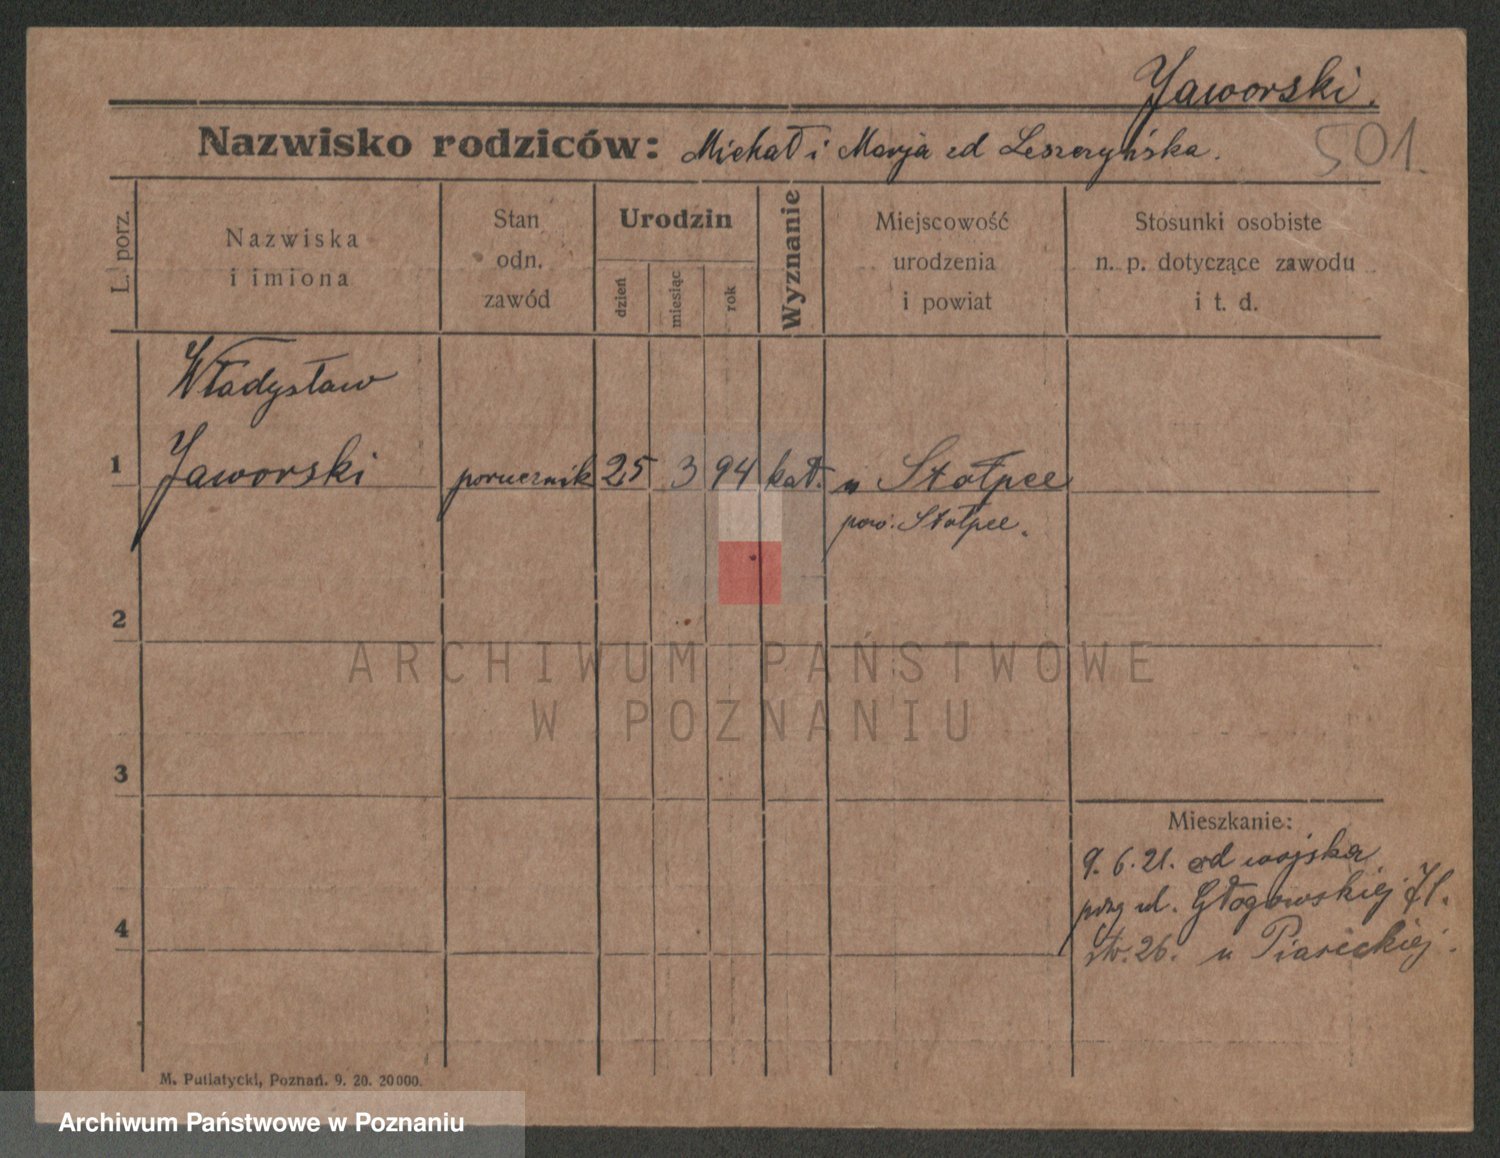 Jaworski.
Nazwisko rodziców: Michał i Marja zd Leszczyńska.
501.
L. porz.
Nazwiska
i imiona
Stan
odn.
zawód
Urodzin
dzień
miesiąc
rok
Wyznanie
Miejscowość
urodzenia
i powiat
Stosunki osobiste
n. p. dotyczące zawodu
i t. d.
Władysław
1 Jaworski porucznik 25 3 94 kat. Stołpce
pow. Stołpce.
2
ARCHIWUM PAŃSTWOWE
W POZNANIU
3
Mieszkanie:
9. 6. 21. od wojska
przy ul. Głogowskiej
4
26. u Piaseckiej.
M. Putiatycki, Poznań. 9. 20. 20000.
Archiwum Państwowe w Poznaniu